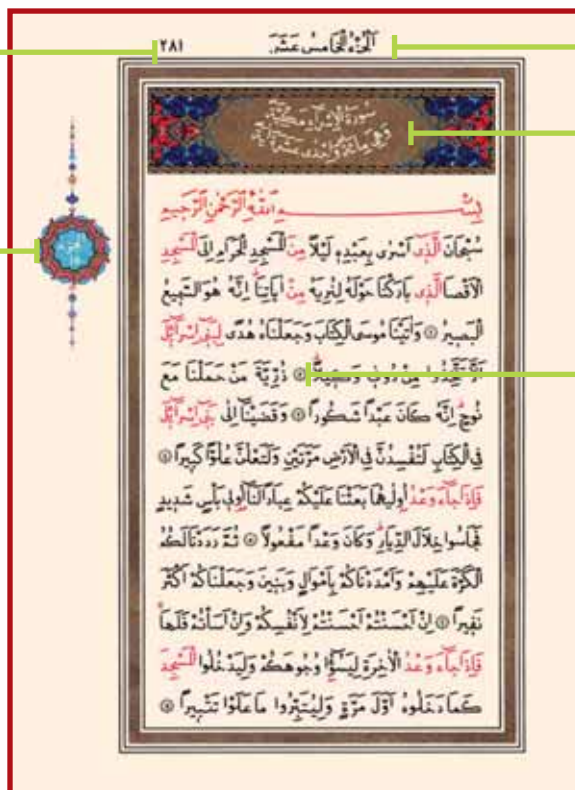 الجزء الخامس عشر
٢٨١
سورة الإسراء مكية
وهي مائة وإحدى عشرة آية
بِسْمِ اللّٰهِ الرَّحْمٰنِ الرَّحِيمِ
سُبْحَانَ الَّذِي اَسْرٰى بِعَبْدِهِ لَيْلاً مِنَ الْمَسْجِدِ الْحَرَامِ اِلَى الْمَسْجِدِ
الْاَقْصَا الَّذِي بَارَكْنَا حَوْلَهُ لِنُرِيَهُ مِنْ اٰيَاتِنَا اِنَّهُ هُوَ السَّمِيعُ
الْبَصِيرُ ١ وَاٰتَيْنَا مُوسَى الْكِتَابَ وَجَعَلْنَاهُ هُدًى لِبَنِي اِسْرَائِلَ
اَلَّا تَتَّخِذُوا مِنْ دُونِي وَكِيلاً ٢ ذُرِّيَّةَ مَنْ حَمَلْنَا مَعَ
نُوحٍ اِنَّهُ كَانَ عَبْداً شَكُوراً ٣ وَقَضَيْنَا اِلٰى بَنِي اِسْرَائِلَ
فِي الْكِتَابِ لَتُفْسِدُنَّ فِي الْاَرْضِ مَرَّتَيْنِ وَلَتَعْلُنَّ عُلُوًّا كَبِيراً ٤
فَاِذَا جَاءَ وَعْدُ اُولٰيهُمَا بَعَثْنَا عَلَيْكُمْ عِبَاداً لَنَا اُولِي بَأْسٍ شَدِيدٍ
فَجَاسُوا خِلَالَ الدِّيَارِ وَكَانَ وَعْداً مَفْعُولاً ٥ ثُمَّ رَدَدْنَا لَكُمُ
الْكَرَّةَ عَلَيْهِمْ وَاَمْدَدْنَاكُمْ بِاَمْوَالٍ وَبَنِينَ وَجَعَلْنَاكُمْ اَكْثَرَ
نَفِيراً ٦ اِنْ اَحْسَنْتُمْ اَحْسَنْتُمْ لِاَنْفُسِكُمْ وَاِنْ اَسَأْتُمْ فَلَهَا
فَاِذَا جَاءَ وَعْدُ الْاٰخِرَةِ لِيَسُوؤُا وُجُوهَكُمْ وَلِيَدْخُلُوا الْمَسْجِدَ
كَمَا دَخَلُوهُ اَوَّلَ مَرَّةٍ وَلِيُتَبِّرُوا مَا عَلَوْا تَتْبِيراً ٧